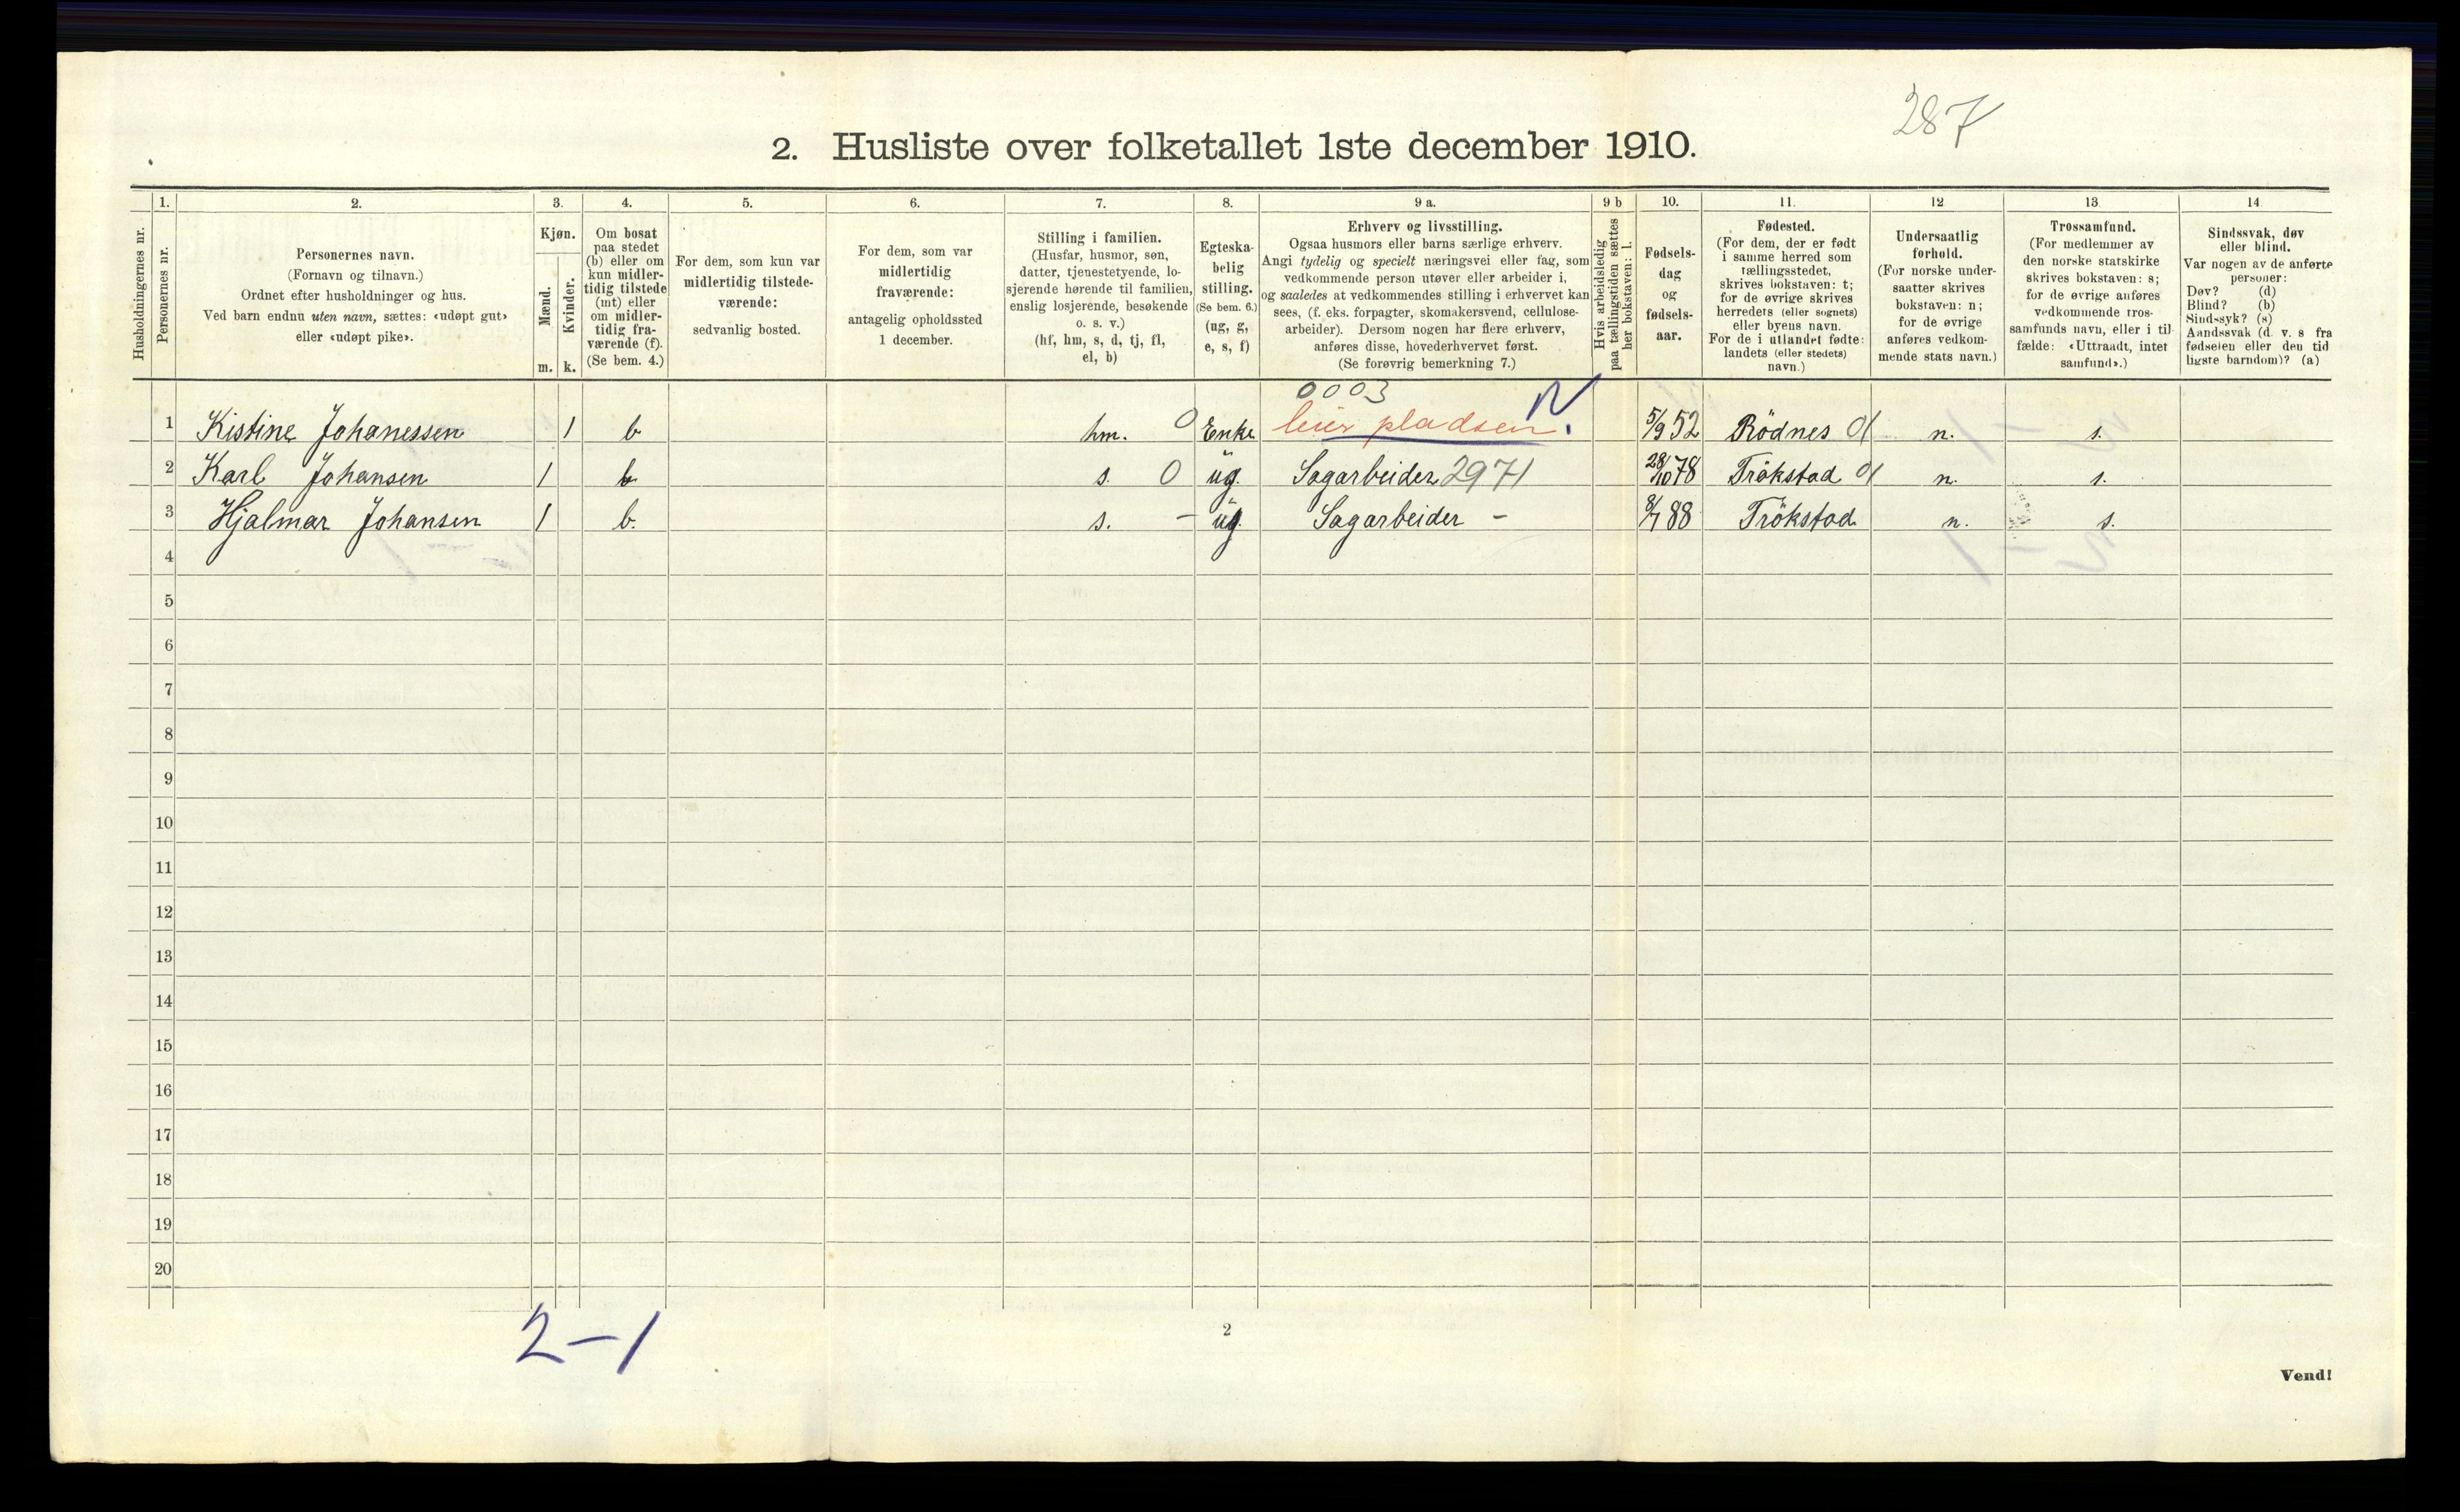 287
2. Husliste over folketallet 1ste december 1910.
Husholdningernes nr.
1.
Personernes nr.
2.
Personernes navn.
(Fornavn og tilnavn.)
Ordnet efter husholdninger og hus.
Ved barn endnu uten navn, sættes: «udøpt gut»
eller «udøpt pike».
3.
Kjøn.
Mænd.
Kvinder.
m. k.
4.
Om bosat
paa stedet
(b) eller om
kun midler-
tidig tilstede
(mt) eller
om midler-
tidig fra-
værende (f).
(Se bem. 4.)
5.
For dem, som kun var
midlertidig tilstede-
værende:
sedvanlig bosted.
6.
For dem, som var
midlertidig
fraværende:
antagelig opholdssted
1 december.
7.
Stilling i familien.
(Husfar, husmor, søn,
datter, tjenestetyende, lo-
sjerende hørende til familien,
enslig losjerende, besøkende
o. s. v.)
(hf, hm, s, d, tj, fl,
el, b)
8.
Egteska-
belig
stilling.
(Se bem. 6.)
(ug, g,
e, s, f)
9 a.
Erhverv og livsstilling.
Ogsaa husmors eller barns særlige erhverv.
Angi tydelig og specielt næringsvei eller fag, som
vedkommende person utøver eller arbeider i,
og saaledes at vedkommendes stilling i erhvervet kan
sees, (f. eks. forpagter, skomakersvend, cellulose-
arbeider). Dersom nogen har flere erhverv,
anføres disse, hovederhvervet først.
(Se forøvrig bemerkning 7.)
9 b
Hvis arbeidsledig
paa tællingstiden sættes
her bokstaven: l.
10.
Fødsels-
dag
og
fødsels-
aar.
11.
Fødested.
(For dem, der er født
i samme herred som
tællingsstedet,
skrives bokstaven: t;
for de øvrige skrives
herredets (eller sognets)
eller byens navn.
For de i utlandet fødte:
landets (eller stedets)
navn.)
12
Undersaatlig
forhold.
(For norske under-
saatter skrives
bokstaven: n;
for de øvrige
anføres vedkom-
mende stats navn.)
13.
Trossamfund.
(For medlemmer av
den norske statskirke
skrives bokstaven: s;
for de øvrige anføres
vedkommende tros-
samfunds navn, eller i til-
fælde: «Uttraadt, intet
samfund».)
14.
Sindssvak, døv
eller blind.
Var nogen av de anførte
personer:
Døv? (d)
Blind? (b)
Sindssyk? (s)
Aandssvak (d. v. s. fra
fødselen eller den tid
ligste barndom)? (a)
0003 N
1 Kistine Johanessen 1 b hm. 0 Enke leier pladsen. 5/9 52 Rödnes 01 n. s.
2 Karl Johansen 1 b s. 0 ug. Sagarbeider 2971 28/10 78 Trökstad 01 n. s.
3 Hjalmar Johansen 1 b. s. - ug. Sagarbeider - 8/7 88 Trökstad n. s.
4
5
6
7
8
9
10
11
12
13
14
15
16
17
18
19
20
2-1
2
Vend!